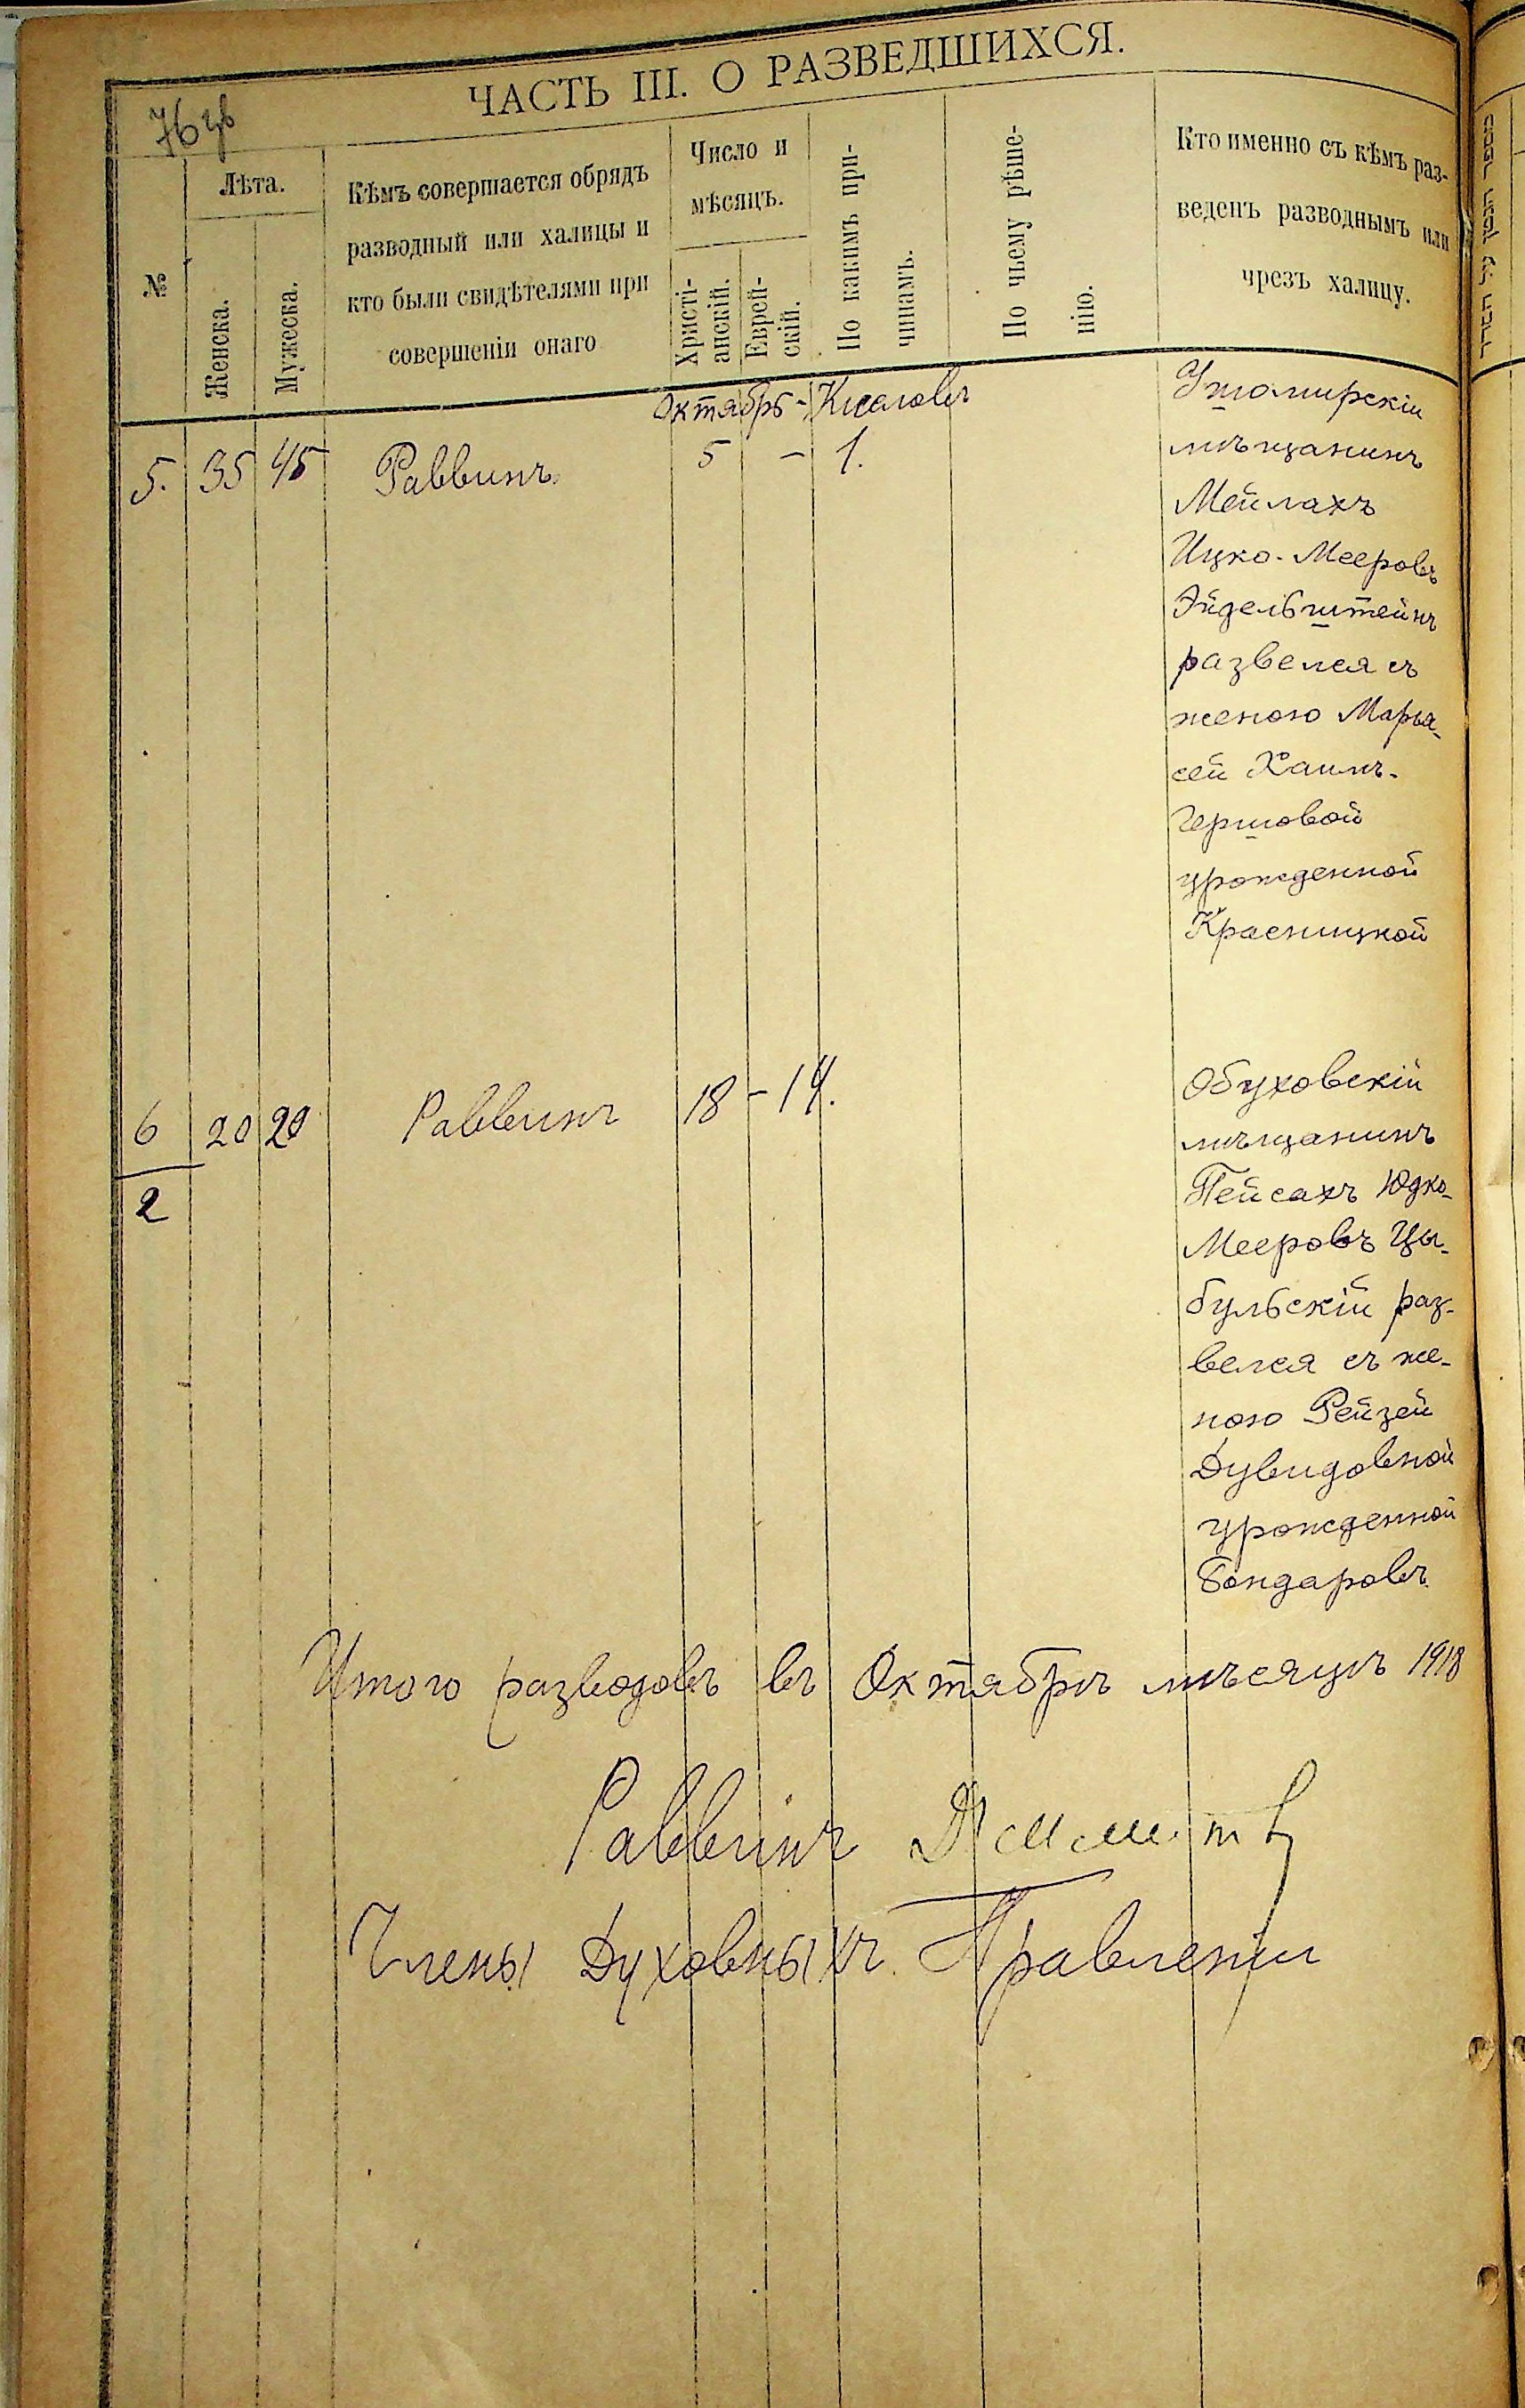 ЧАСТЬ III. О РАЗВЕДШИХСЯ.
№
Лѣта.
Женска.
Мужеска.
Кѣмъ совершается обрядъ
разводный или халицы и
кто были свидѣтелями при
совершеніи онаго
Число и
мѣсяцъ.
Христі-
анскій.
Еврей-
скій.
По какимъ при-
чинамъ.
По чьему рѣше-
нію.
Кто именно съ кѣмъ раз-
веденъ разводнымъ или
чрезъ халицу.
Октябрь -
5. 35 45 Раввинъ. 5 - 1.
мѣщанинъ
Мейлахъ
Ицко-Мееровъ
Эйдельштейнъ
развелся съ
женою Марья-
сей Хаимъ-
Гершовой
урожденной
Красницкой
6 20 20 Раввинъ 18 - 14.
2
Обуховскій
мѣщанинъ
Пейсахъ Юдко-
Мееровъ Цы-
бульскій раз-
велся съ же-
ною Рейзей
Дувидовной
урожденной
Бондаровъ
Итого разводовъ въ Октябрѣ мѣсяцѣ 1918
Раввинъ
Члены Духовныхъ Правленія